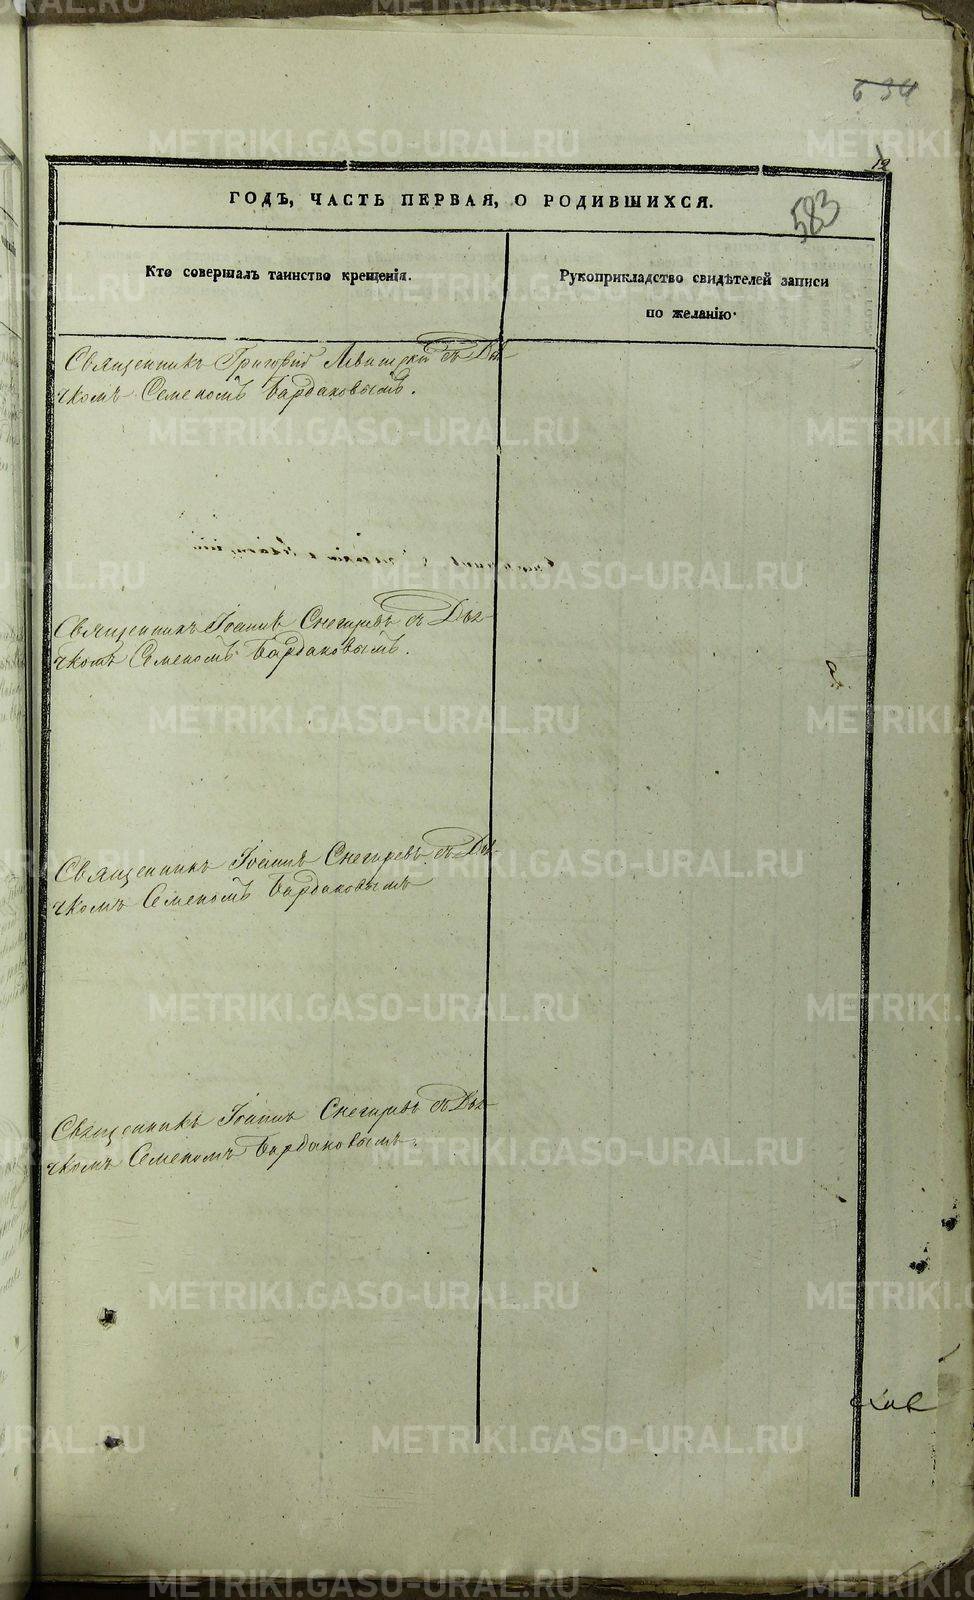 634
12
ГОДЪ, ЧАСТЬ ПЕРВАЯ, О РОДИВШИХСЯ.
583
Кто совершалъ таинство крещенія.
Рукоприкладство свидѣтелей записи
по желанію.
Священникъ Григорій съ Дья-
чкомъ Семеномъ Бардаковымъ.
Священникъ Іоаннъ Снегиревъ съ Дья-
чкомъ Семеномъ Бардаковымъ.
Священникъ Іоаннъ Снегиревъ съ Дья-
чкомъ Семеномъ Бардаковымъ
Священникъ Іоаннъ Снегиревъ съ Дья-
чкомъ Семеномъ Бардаковымъ.
METRIKI.GASO-URAL.RU